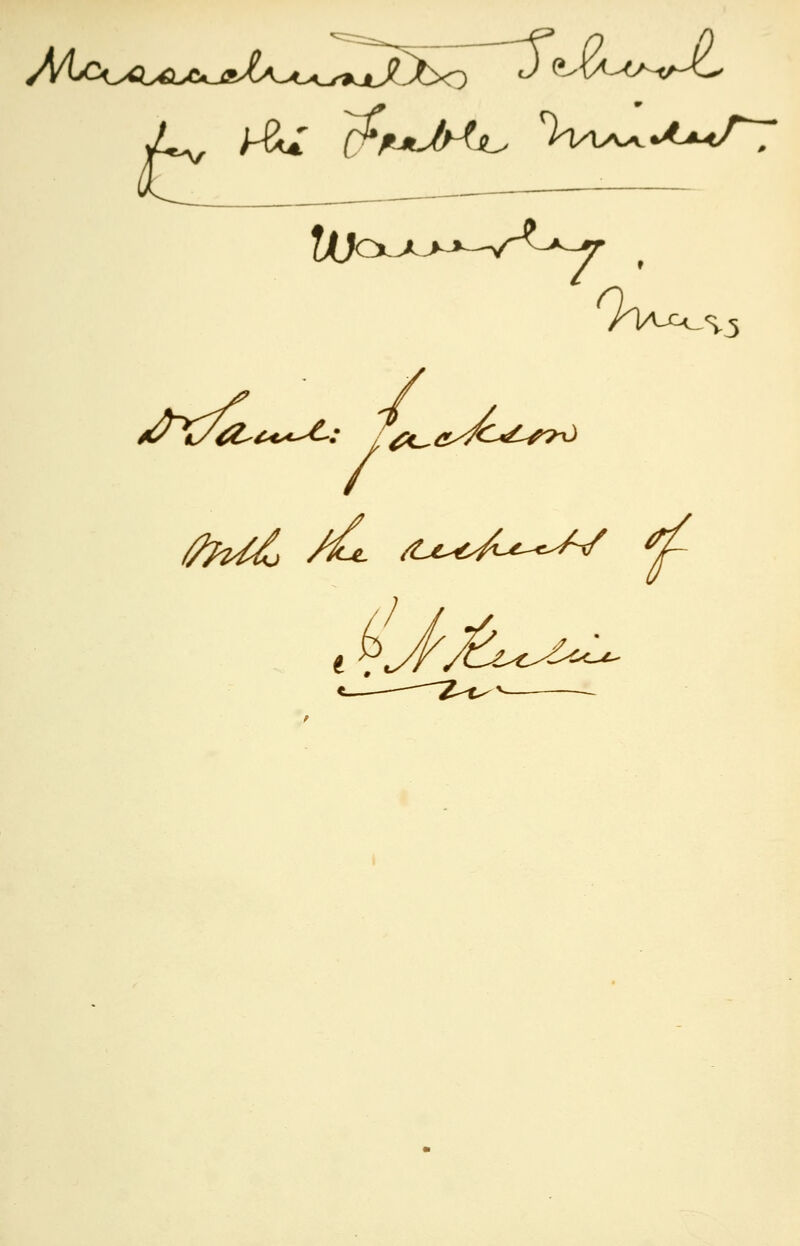 Massachusetts School
for the Feeble Minded.
Waverley,
Mass
Dr Saml: Jackson
With the respects of
I. N. Kerlin